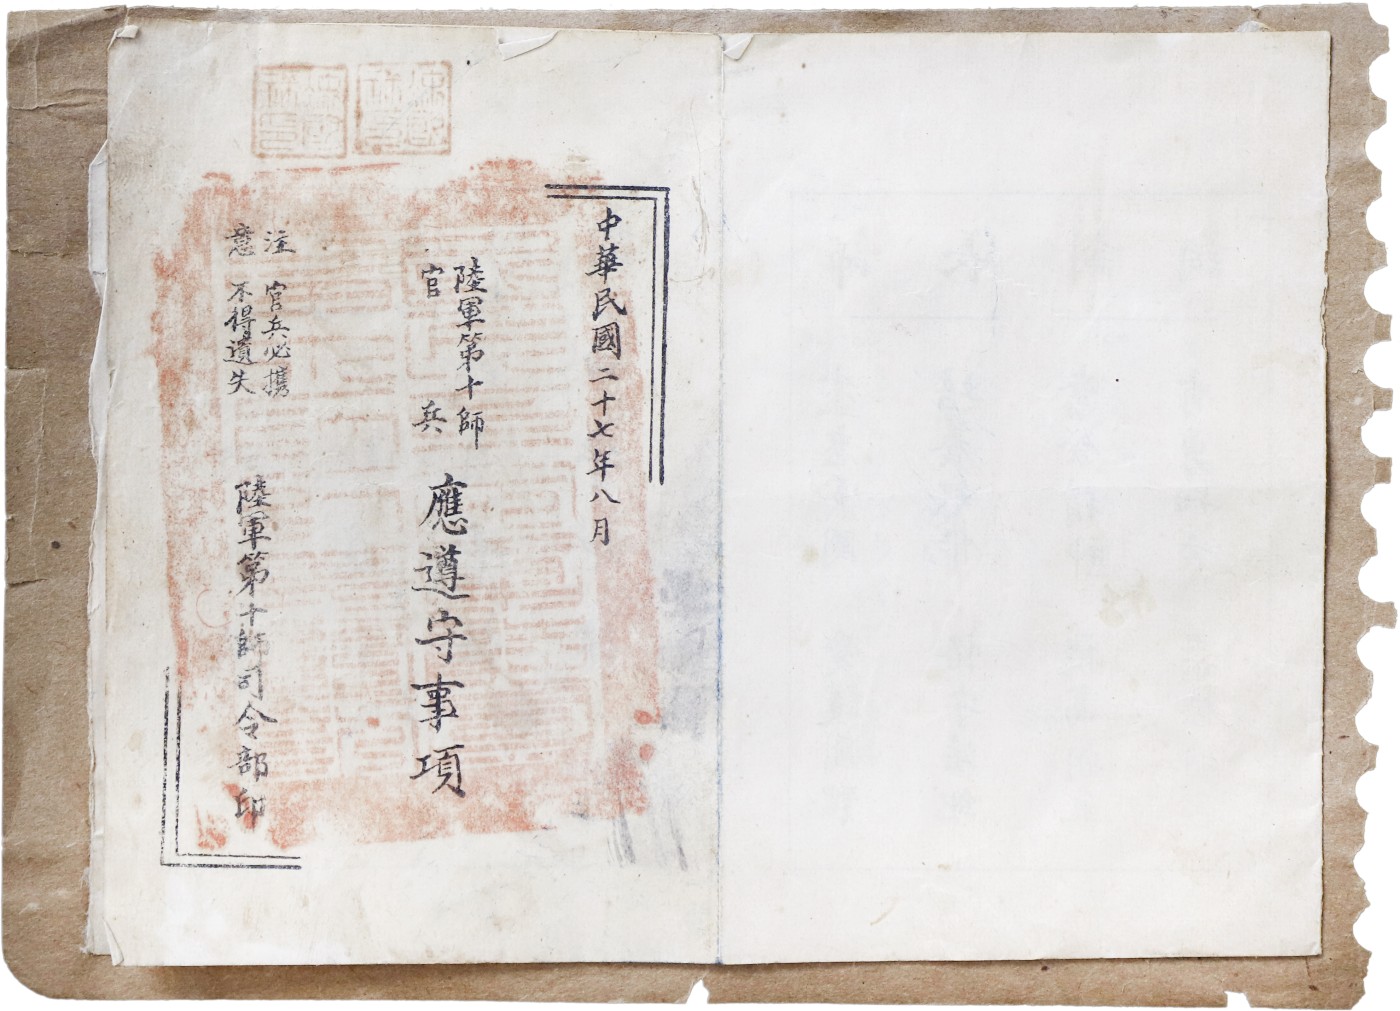 中華民國二十七年八月
陸軍第十師
官兵
應遵守事項
注意
官兵必攜
不得遺失
陸軍第十師司令部印